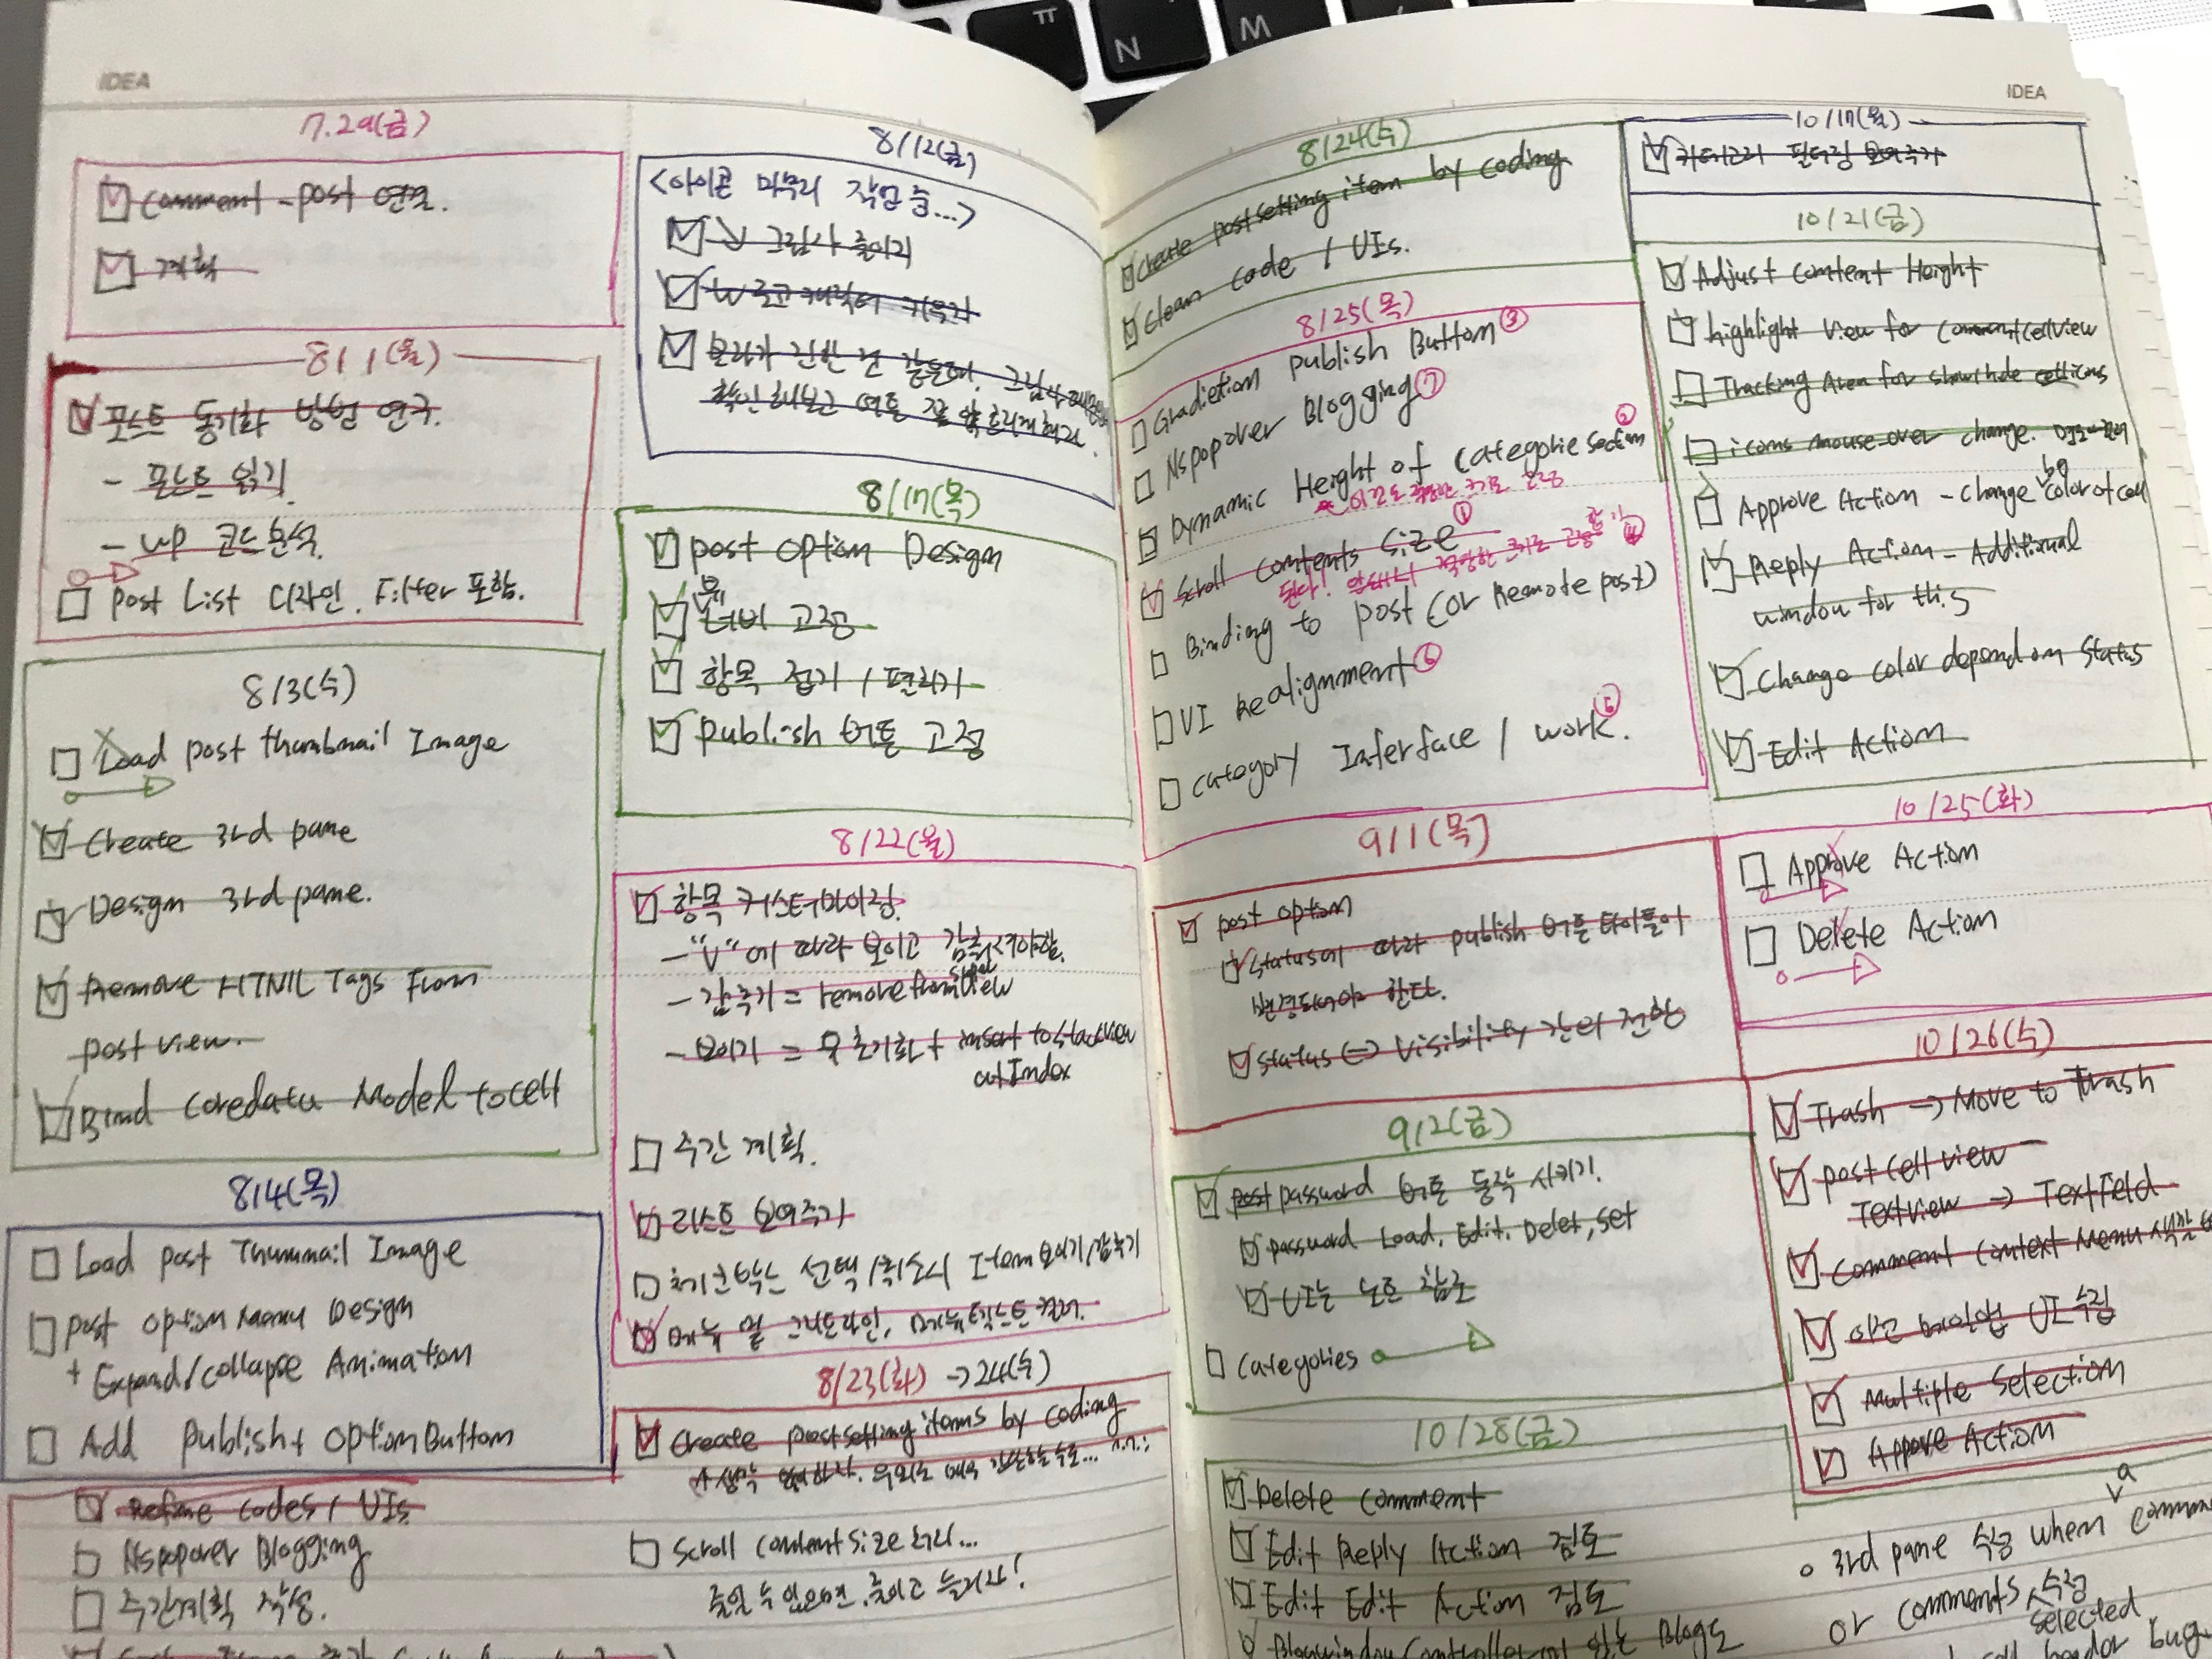 ㅠ
N
M
IDEA
7.29(금)
Comment - post 연결.
계획
8/1(월)
포스트 동기화 방법 연구.
- 포스트 읽기
- WP 코드분석.
Post List 디자인. Filter 포함.
8/3(수)
Load post thumbnail Image
Create 3rd pane
Design 3rd pane.
Remove HTML Tags From
post view.
Bind Coredata Model to cell
8/4(목)
Load post Thumnail Image
Post Option Menu Design
+ Expand/collapse Animation
Add Publish + Option Button
Refine codes / UIs
Nspopover Blogging
주간계획 작성.
8/12(금)
<아이콘 마무리 작업 중...>
그림자 줄이기
W 로고
8/17(목)
Post Option Design
뷰 너비 고정
항목 접기 / 펼치기
Publish 버튼 고정
8/22(월)
항목 커스터마이징.
- "V"에 따라 보이고 감춰져야함.
- 감추기 = remove from Super View
- 보이기 = 뷰 초기화 + insert to stackview
at Index
주간 계획.
리스트 보여주기
체크박스 선택/취소시 Item 보이기/감추기
메뉴 밑 그리드라인, 메뉴텍스트 컬러.
8/23(화) → 24(수)
Create post setting items by coding
Scroll content size 처리...
줄일 수 있으면, 줄이고 늘리자!
IDEA
8/24(수)
Create post setting item by coding
Clean code / UIs.
8/25(목)
Gradietion Publish Button ③
Nspopover Blogging ⑦
Dynamic Height of Categorie Section ②
이것도 적당한 크기로 고정
Scroll Contents Size ①
된다! 안돼니 적당한 크기로 고정
Binding to post (or Remote post) ④
UI Realignment ⑥
Category Interface / work. ⑤
9/1(목)
Post option
Status에 따라 publish 버튼 타이틀이
변경되어야 한다.
Status ⟺ Visibility 간의 전환
9/2(금)
post password 버튼 동작 시키기.
Password Load, Edit, Delet, Set
UI는 노트 참조
Categories
10/28(금)
Delete Comment
Edit Reply Action 검토
Edit Edit Action 검토
10/17(월)
카테고리 필터링 보여주기
10/21(금)
Adjust Content Height
highlight View for CommentCellView
Tracking Area for show/hide cell icons
icons mouse over change.
Approve Action - change bg color of cell
Reply Action - Additional
window for this
Change color depend on Status
Edit Action
10/25(화)
Approve Action
Delete Action
10/26(수)
Trash → Move to Trash
Post Cell View
TextView → TextField
Comment Context Menu
UI 수정
Multiple Selection
Appove Action
3rd pane 수정 when a
or comments 수정
selected
bug